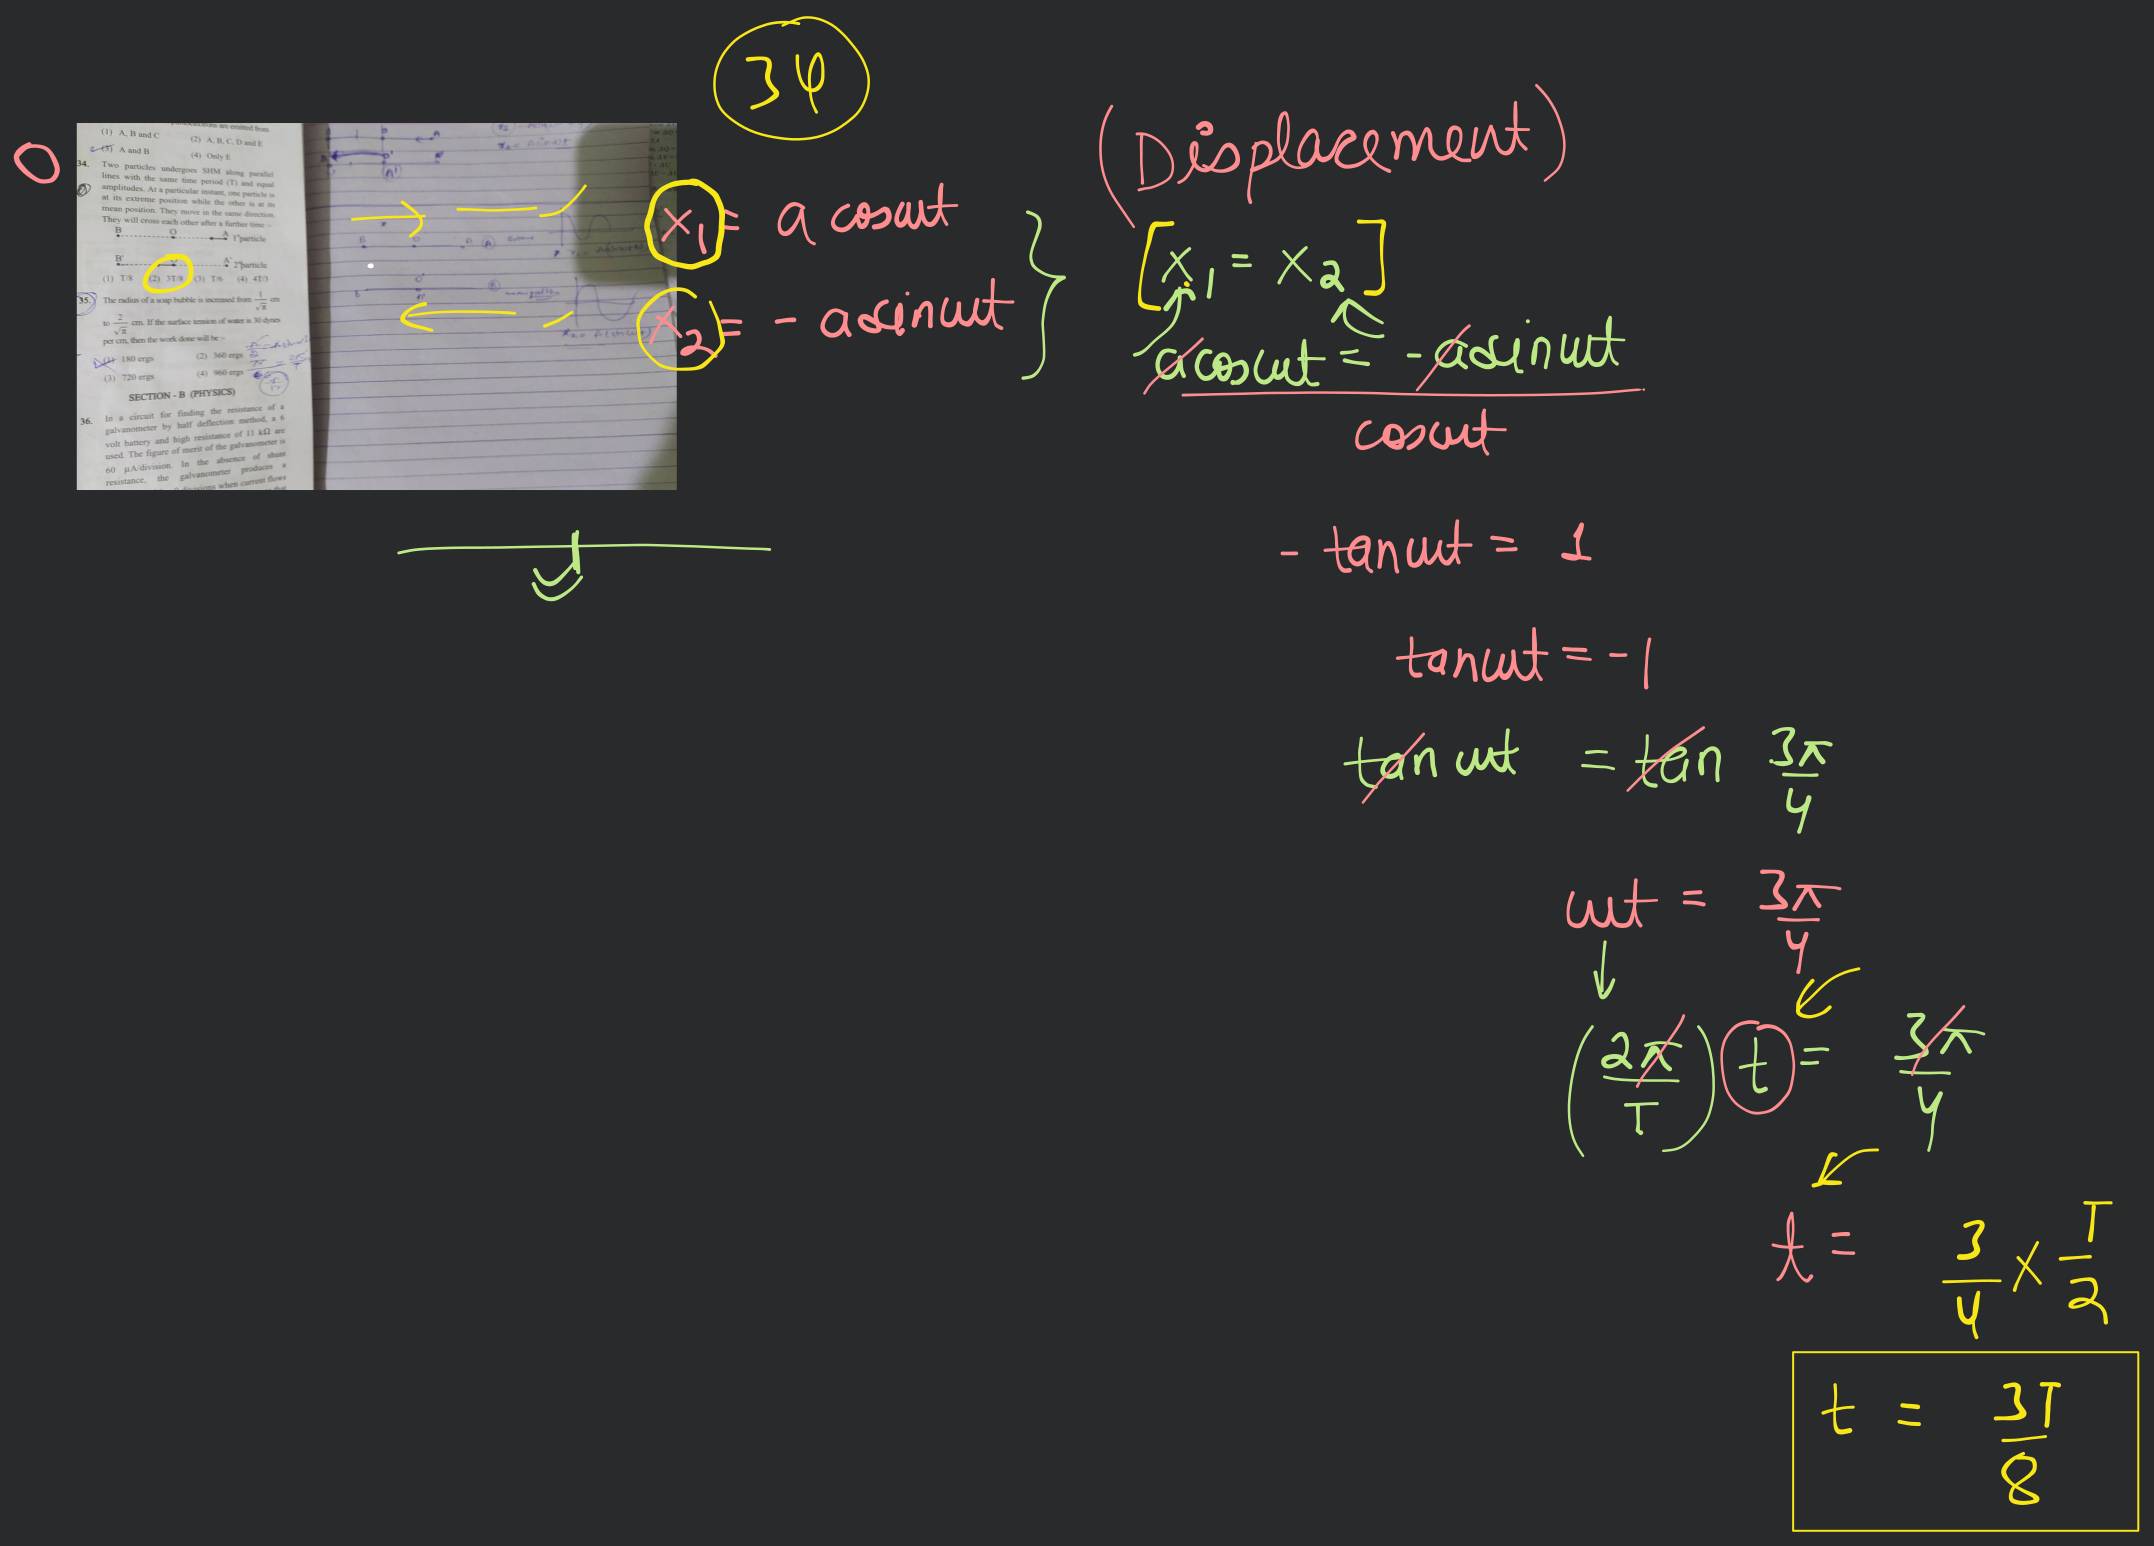 34
(1) A, B and C
(2) A, B, C, D and E
(3) A and B
(4) Only E
34. Two particles undergoes SHM along parallel
lines with the same time period (T) and equal
amplitudes. At a particular instant, one particle is
at its extreme position while the other is at its
mean position. They move in the same direction.
They will cross each other after a further time :-
B O A 1st particle
B' A' 2nd particle
(1) T/8 (2) 3T/8 (3) T/6 (4) 4T/3
35. The radius of a soap bubble is increased from 1/√π cm
to 2/√π cm. If the surface tension of water is 30 dynes
per cm, then the work done will be :-
(1) 180 ergs (2) 360 ergs
(3) 720 ergs (4) 960 ergs
SECTION - B (PHYSICS)
36. In a circuit for finding the resistance of a
galvanometer by half deflection method, a 6
volt battery and high resistance of 11 kΩ are
used. The figure of merit of the galvanometer is
60 μA/division. In the absence of shunt
resistance, the galvanometer produces a
divisions when current flows
x₁ = a cosωt
x₂ = - a sinωt
(Displacement)
[x₁ = x₂]
a cosωt = - a sinωt
cosωt
- tanωt = 1
tanωt = -1
tan ωt = tan 3π/4
ωt = 3π/4
(2π/T) t = 3π/4
t = 3/4 × T/2
t = 3T/8